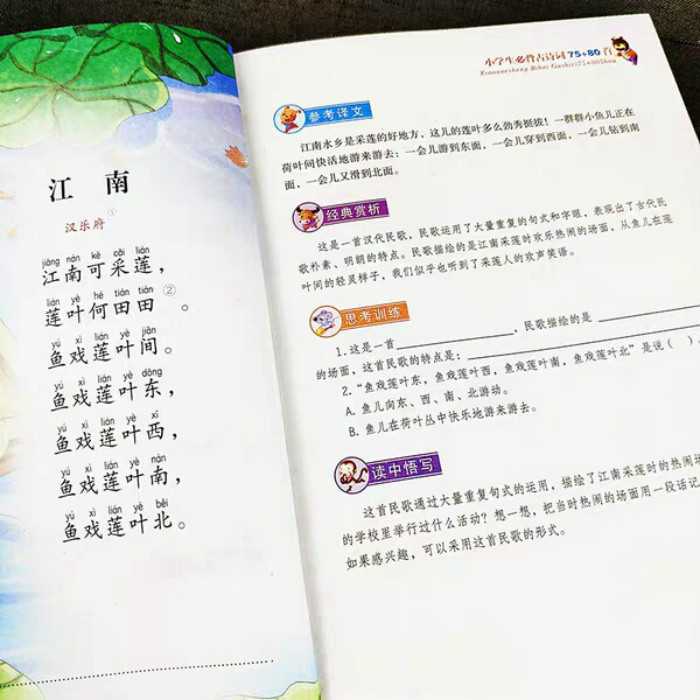 江南
①
汉乐府
jiāng nán kě cǎi lián
江南可采莲，
lián yè hé tián tián
莲叶何田田②。
yú xì lián yè jiān
鱼戏莲叶间。
yú xì lián yè dōng
鱼戏莲叶东，
yú xì lián yè xī
鱼戏莲叶西，
yú xì lián yè nán
鱼戏莲叶南，
yú xì lián yè běi
鱼戏莲叶北。
小学生必背古诗词75+80首
Xiaoxuesheng Bibei Gushici75+80Shou
参考译文
江南水乡是采莲的好地方，这儿的莲叶多么劲秀挺拔！一群群小鱼儿正在
荷叶间快活地游来游去：一会儿游到东面，一会儿穿到西面，一会儿钻到南
面，一会儿又滑到北面。
经典赏析
这是一首汉代民歌，民歌运用了大量重复的句式和字眼，表现出了古代民
歌朴素、明朗的特点。民歌描绘的是江南采莲时欢乐热闹的场面，从鱼儿在莲
叶间的轻灵样子，我们似乎也听到了采莲人的欢声笑语。
思考训练
1.这是一首____________，民歌描绘的是____________
的场面，这首民歌的特点是：____________
2.“鱼戏莲叶东，鱼戏莲叶西，鱼戏莲叶南，鱼戏莲叶北”是说（ ）。
A. 鱼儿向东、西、南、北游动。
B. 鱼儿在荷叶丛中快乐地游来游去。
读中悟写
这首民歌通过大量重复句式的运用，描绘了江南采莲时的热闹场
的学校里举行过什么活动？想一想，把当时热闹的场面用一段话记
如果感兴趣，可以采用这首民歌的形式。